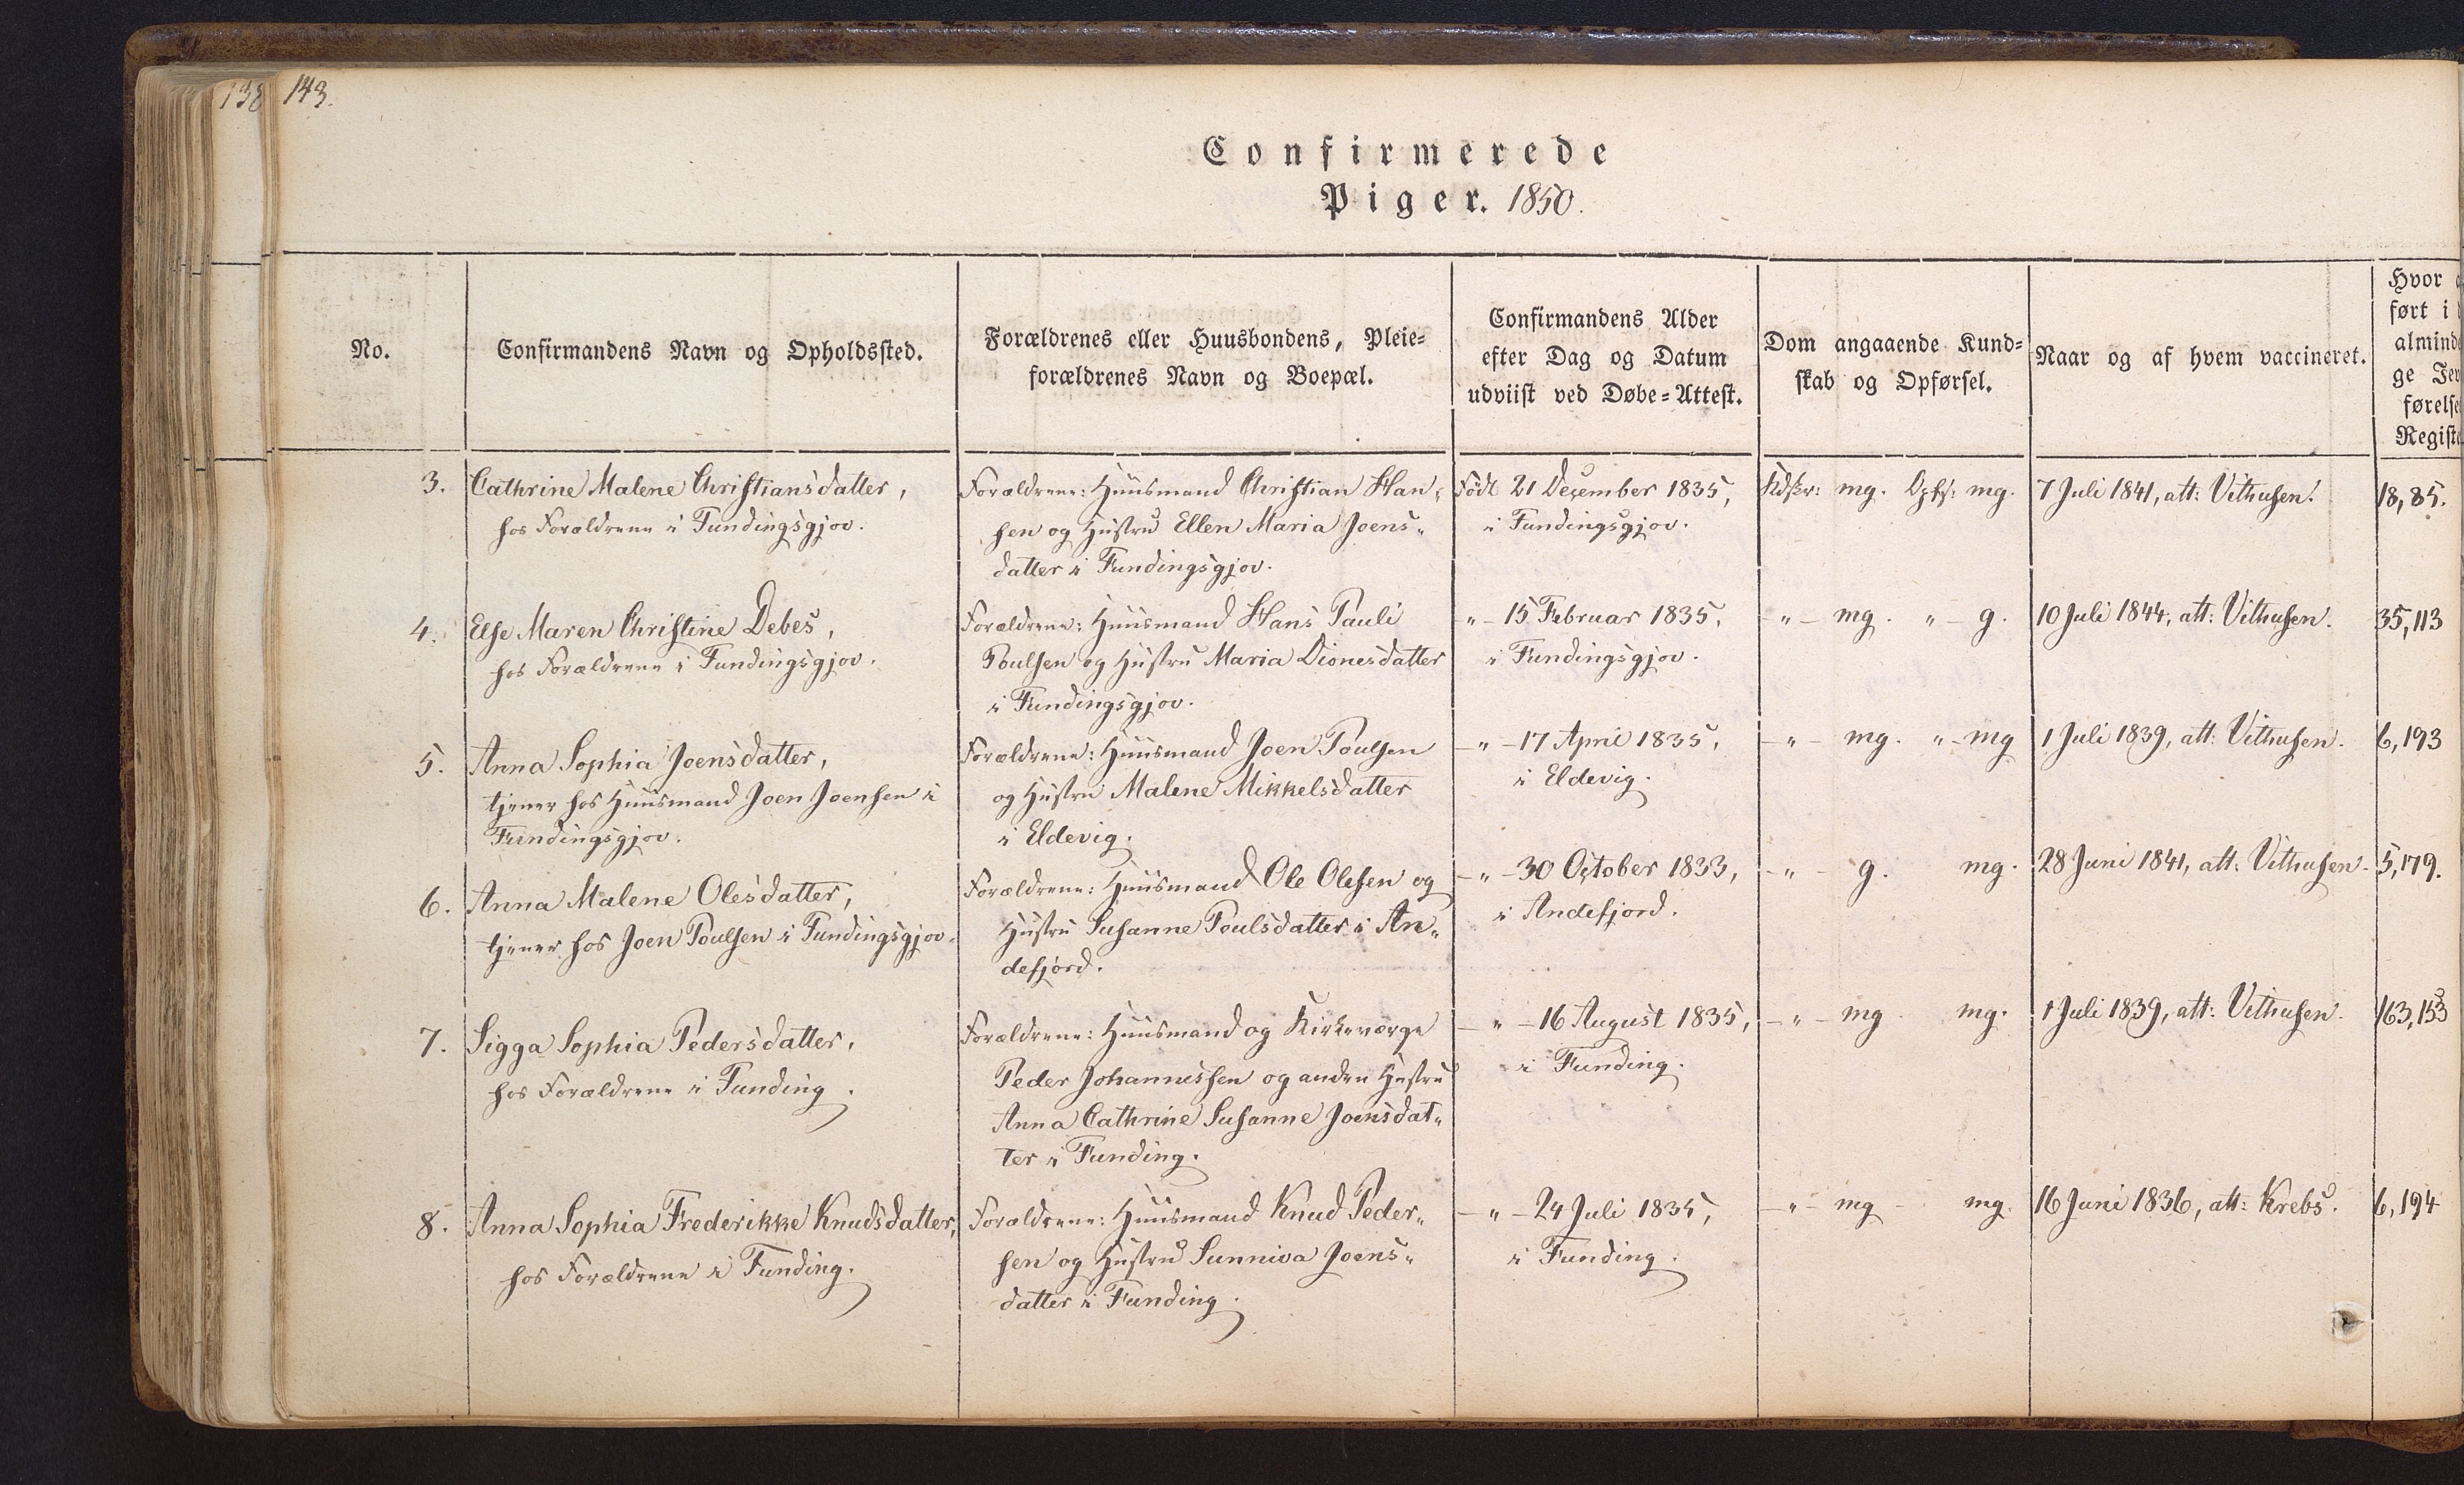 138 143.
Confirmerede
Piger. 1850.
No.
Confirmandens Navn og Opholdssted.
Forældrenes eller Huusbondens, Pleie=
forældrenes Navn og Boepæl.
Confirmandens Alder
efter Dag og Datum
udviist ved Døbe=Attest.
Dom angaaende Kund=
skab og Opførsel.
Naar og af hvem vaccineret.
Hvor
ført i
alminde
ge Jev
førelse
Registe
3.
Cathrine Malene Christiansdatter,
hos Forældrene i Fundingsgjov.
Forældrene: Huusmand Christian Han,,
sen og Hustru Ellen Maria Joens,,
datter i Fundingsgjov.
Født 21 December 1835,
i Fundingsgjov.
Kdsk: mg. Opfs: mg.
7 Juli 1841, att: Vithusen.
18, 85.
4.
Else Maren Christine Debes,
hos Forældrene i Fundingsgjov.
Forældrene: Huusmand Hans Pauli
Poulsen og Hustru Maria Dionesdatter
i Fundingsgjov.
" - 15 Februar 1835,
i Fundingsgjov.
- " - mg. " - g.
10 Juli 1844, att: Vithusen.
35, 113
5.
Anna Sophia Joensdatter,
tjener hos Huusmand Joen Joensen i
Fundingsgjov.
Forældrene: Huusmand Joen Poulsen
og Hustru Malene Mikkelsdatter
i Eldevig.
- " - 17 April 1835,
i Eldevig.
- " - mg. " - mg
1 Juli 1839, att: Vithusen.
6, 193
6.
Anna Malene Olesdatter,
tjener hos Joen Poulsen i Fundingsgjov.
Forældrene: Huusmand Ole Olesen og
Hustru Susanne Poulsdatter i An,,
defjord.
- " - 30 October 1833,
i Andefjord.
- " - g. mg.
28 Juni 1841, att: Vithusen.
5, 179.
7.
Sigga Sophia Pedersdatter,
hos Forældrene i Funding.
Forældrene: Huusmand og Kirkeværge
Peder Johannessen og anden Hustru
Anna Cathrine Susanne Joensdat,,
ter i Funding.
- " - 16 August 1835,
i Funding.
- " - mg mg.
1 Juli 1839, att: Vithusen.
163, 153
8.
Anna Sophia Frederikke Knudsdatter,
hos Forældrene i Funding.
Forældrene: Huusmand Knud Peder,,
sen og Hustru Sunniva Joens,,
datter i Funding.
- " - 24 Juli 1835,
i Funding.
- " - mg - mg.
16 Juni 1836, att: Krebs.
6, 194